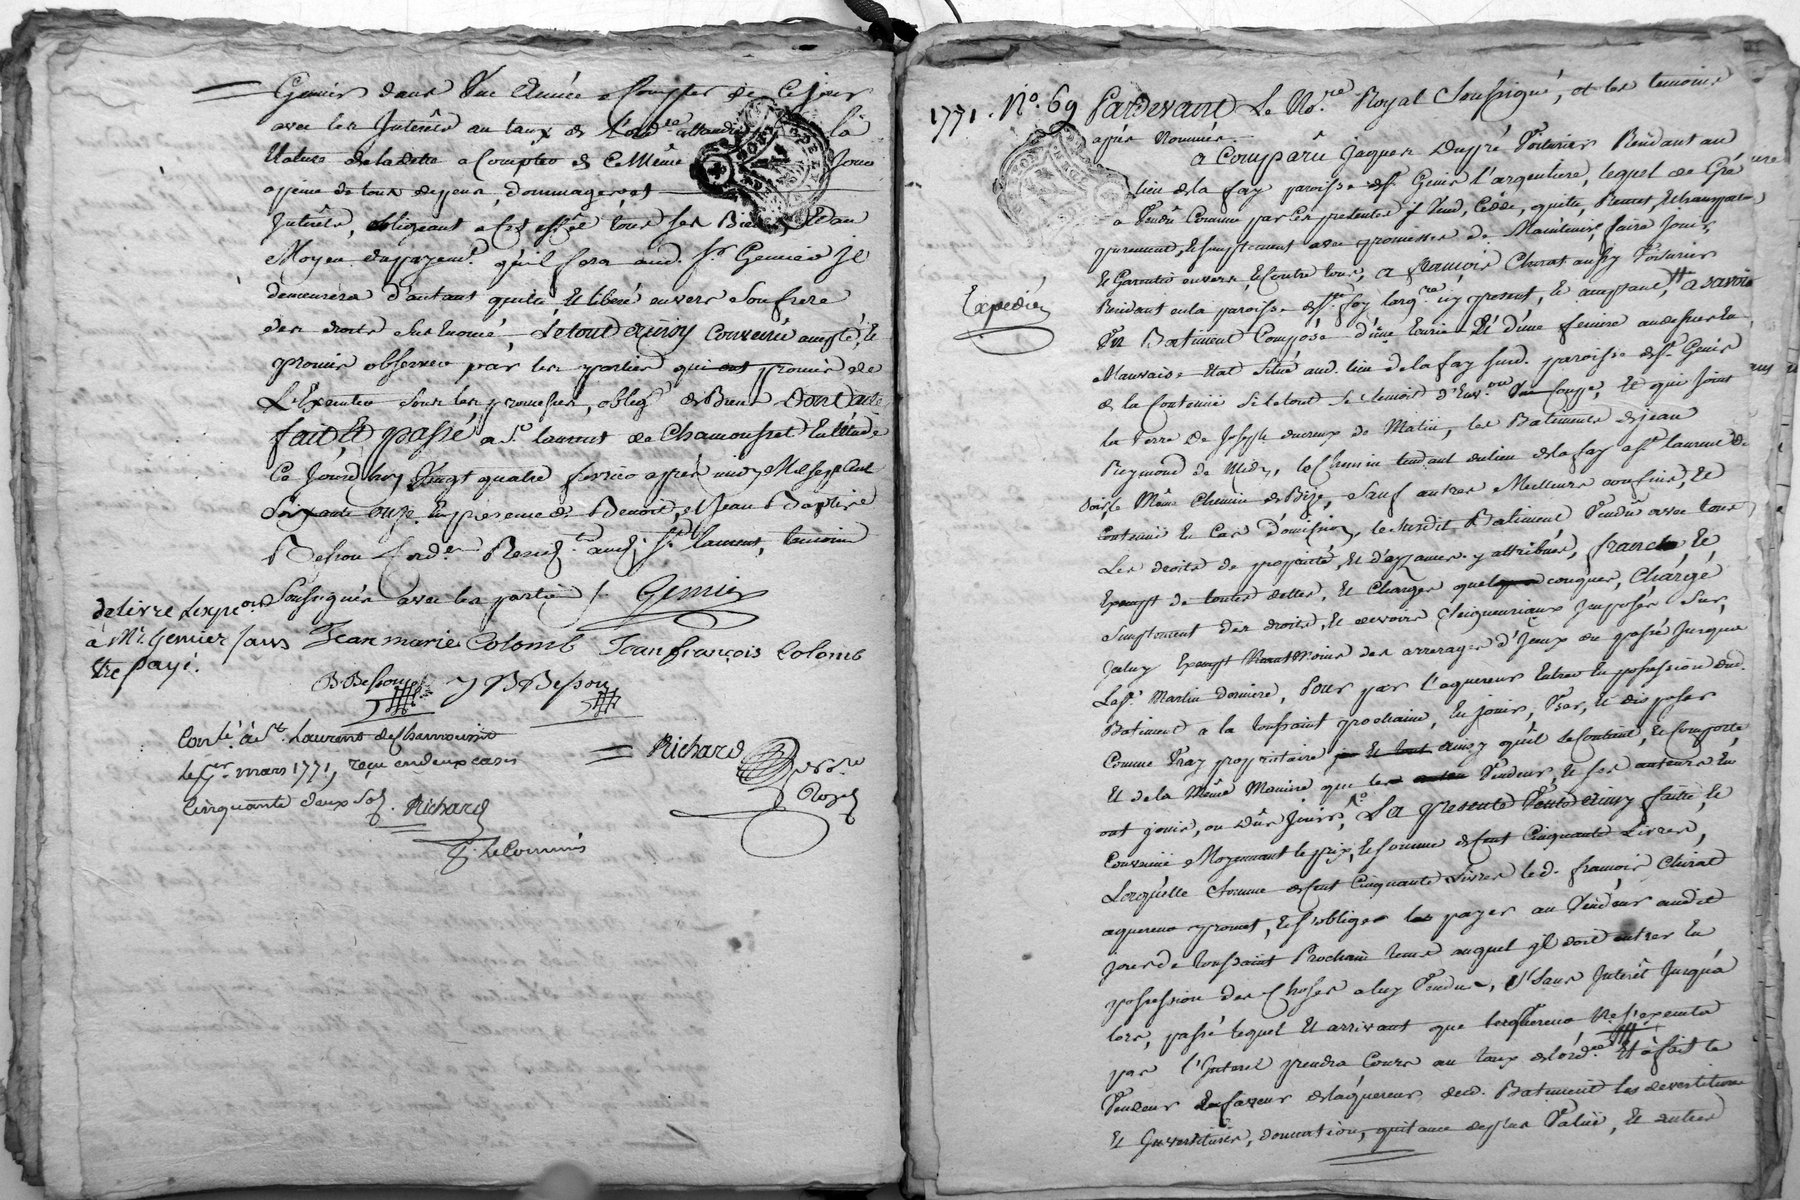 Genier dans Une Année a Compter de Ce jour
avec les Interêts au taux de l'ord.re attandu la
Nature de la dette a Compter de Ce Même jour
a peine de tous depens, dommages, et
Interêts, obligeant a cet effet tous ses Biens, Et au
Moyen du payem.t qu'il fera aud. S.r Genier Il
demeurera d'autant quitte Et liberé envers Son frere
des droits Sus Enoncé, Le tout ainsy Convenu accepté, Et
promis observer par les parties qui ont promis de
L'Executer Sous les promesses, oblig. de Biens Dont acte
fait, Et passé a S.t laurent de Chamousset En l'étude
Ce Jourd'huy Vingt quatre fevrier après midy Mil sept Cent
Soixante onze En presence de Benoit, et Jean Baptiste
Besson Cord.er Resid.ts aud. S.t laurent, temoins
Soussignés avec les parties /. Genier
delivré L'expe.on
à Mr. Genier sans
Etre payé.
Jean marie Colomb Jean françois Colomb
B Besson J B Besson
Con.lé à St. Laurent de Chamousset
le 1er mars 1771, reçu en deux cases
Cinquante deux Sols. Richard
Richard
No.re
Royal
P. Le Commis
1771. No. 69 Pardevant Le No.re Royal Soussigné, et les temoins
après Nommés
a Comparû Jaques Dupré Voiturier Residant au
lieu de la fay paroisse de S.t Genis l'argentiere, lequel de Gré
a Vendû Comme par Ces presentes Il Vend, Cedde, quitte, Remet, Et transporte
purement, Et simplement avec promesses de Maintenir, faire Jouir,
Et Garantir envers, Et Contre tous, a françois Chirat aussy Voiturier
Expedié
Residant en la paroisse de S.te foy l'arg.re icy present, Et acceptant, a Savoir
Un Batiment Composé d'une Ecurie Et d'une feniere au dessus En
Mauvais Etat Situé aud. lieu de la fay sus d. paroisse de S.t Genis
de la Contenue Se le tout Se Semoit d'Env.on Une Coupe, Et qui Joint
la Terre de Joseph ducreux de Matin, les Batiments de jean
Reymond de Midy, le Chemin tendant du lieu de la fay a S.t laurent de
Soir, le Même Chemin de Bize, Sauf autres Meilleurs confins, Et
Contenue En Cas d'omission, le Susdit Batiment Vendû avec tous
Les droits de proprieté, Et d'aysances y attribués, franc Et
Exempt de toutes dettes, Et Charges quelconques, Chargé
Simplement des droits, Et devoirs Seigneuriaux Imposés Sur
Iceluy Exempt Neantmoins des arrerages d'Iceux du passé Jusque
La S.t Martin derniere, Pour par l'aquereur Entrer En possession dud.
Batiment a la toussaint prochaine, En jouir, User, Et disposer
Comme Vray proprietaire ainsy qu'il Se Contient, Et Comporte,
Et de la Même Maniere que le Vendeur, Et ses auteurs En
ont joui, ou Dûs Jouir, La presente Vente ainsy faite, Et
Convenue Moyennant le prix, Et Somme de Cent Cinquante Livres,
Laquelle Somme de Cent Cinquante Livres led. françois Chirat
aquereur promet, Et s'oblige payer au Vendeur audit
jour de toussaint Prochain tems auquel Il doit entrer En
possession des Choses a luy Vendue, Et Sans Interêt Jusqu'a
lors, passé lequel Et arrivant que l'aquereur Ne s'executa
pas l'Interet prendra Cours au taux de l'ord.ce Et a fait le
Vendeur En faveur de l'aquereur dud. Batiment les devestitures
Et Investitures, donnation, quittance de plus Value, Et autres